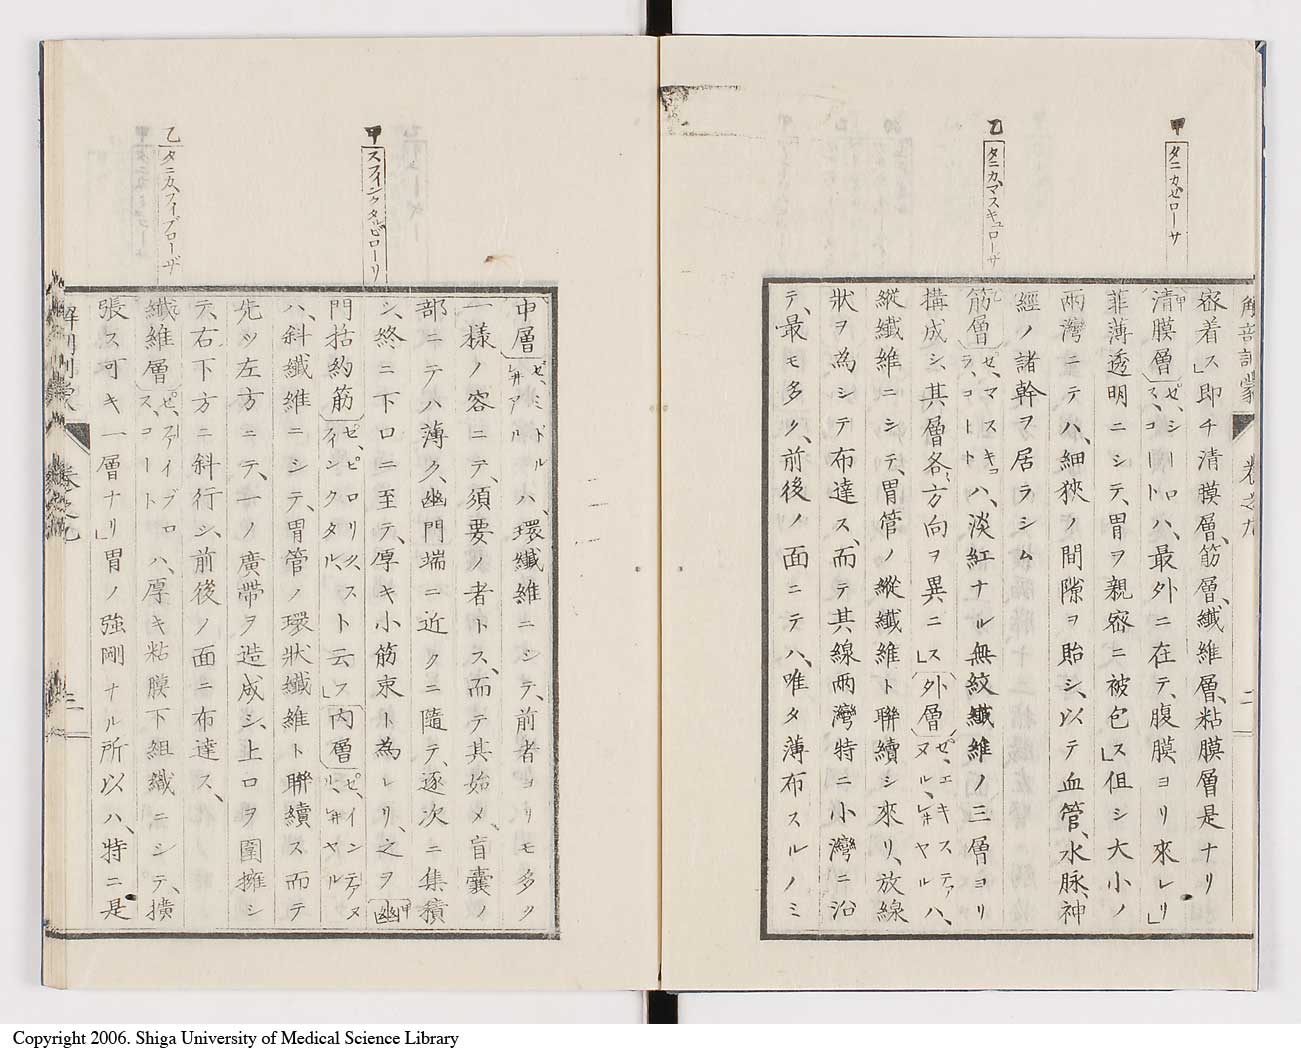 甲 タニカセローサ
乙 タニカ、マスキュローザ
解剖訓蒙 卷之九 二
密着ス」即チ清膜層、筋層、纎維層、粘膜層是ナリ
清膜層ゼ、シーロス、コートハ、最外ニ在テ、腹膜ヨリ來レリ」
菲薄透明ニシテ、胃ヲ親密ニ被包ス」但シ大小ノ
兩灣ニテハ、細狹ノ間隙ヲ貽シ、以テ血管、水脉、神
經ノ諸幹ヲ居ラシム
筋層ゼ、マスキュラ、コートハ、淡紅ナル無紋纎維ノ三層ヨリ
構成シ、其層各、方向ヲ異ニス」外層ゼ、エキステァヌル、レ井ヤルハ、
縱纎維ニシテ、胃管ノ縱纎維ト聯續シ來リ、放線
狀ヲ為シテ布達ス、而テ其線兩灣特ニ小灣ニ沿
テ、最モ多ク、前後ノ面ニテハ、唯タ薄布スルノミ
甲 スフインクタル、ピローリ
乙 タニカ、フイブローザ
中層ゼ、ミドル、レ井アルハ、環纎維ニシテ、前者ヨリモ多ク
一様ノ容ニテ、須要ノ者トス、而テ其始メ、盲囊ノ
部ニテハ薄ク、幽門端ニ近クニ隨テ、逐次ニ集積
シ、終ニ下口ニ至テ、厚キ小筋束ト為レリ、之ヲ幽
門括約筋ゼ、ピロリク、スフインクタルト云フ」内層ゼ、インテァヌル、レ井ヤル
ハ、斜纎維ニシテ、胃管ノ環狀纎維ト聯續ス而テ
先ツ左方ニテ、一ノ廣帶ヲ造成シ、上口ヲ圍擁シ
テ、右下方ニ斜行シ、前後ノ面ニ布達ス、
纎維層ゼ、ファイブロス、コートハ、厚キ粘膜下組織ニシテ、擴
張ス可キ一層ナリ」胃ノ強剛ナル所以ハ、特ニ是